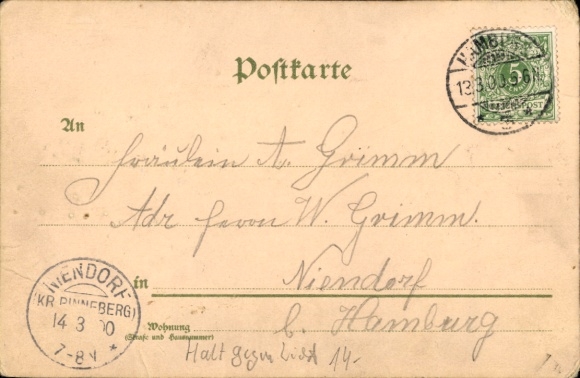 Postkarte
HAMBURG
13.3.00.5-6N.
An
Fräulein A. Grimm
Adr Herrn W. Grimm.
in Niendorf
b. Hamburg
Wohnung
(Straße und Hausnummer)
NIENDORF
(KR. PINNEBERG)
14 3 00
7-8V
Halt gegen Licht 14-